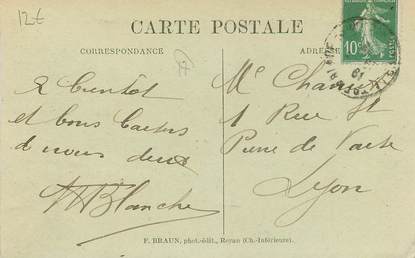 12€
CARTE POSTALE
CORRESPONDANCE
ADRESSE
10c
A bientôt
et bons baisers
de nous deux
Blanche
Mr
1 Rue St
Pierre de Vaise
Lyon
F. BRAUN, phot.-édit., Royan (Ch.-Inférieure).